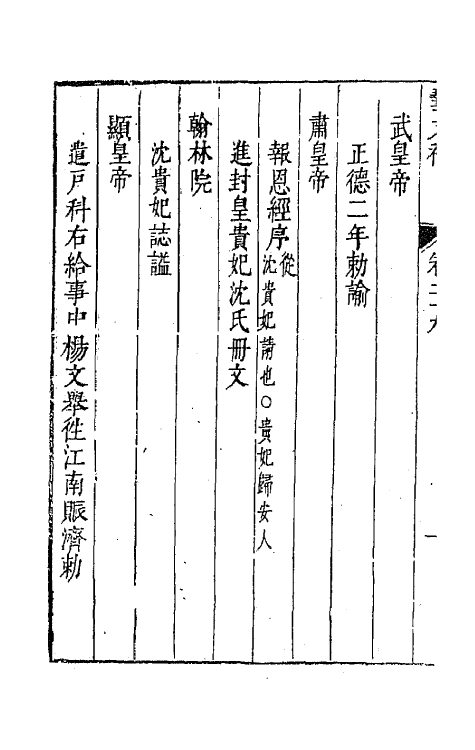 武皇帝
正德二年勅諭
肅皇帝
報恩經序從沈貴妃請也○貴妃歸安人
進封皇貴妃沈氏冊文
翰林院
沈貴妃誌謚
顯皇帝
遣戸科右給事中楊文舉徃江南賑濟勅